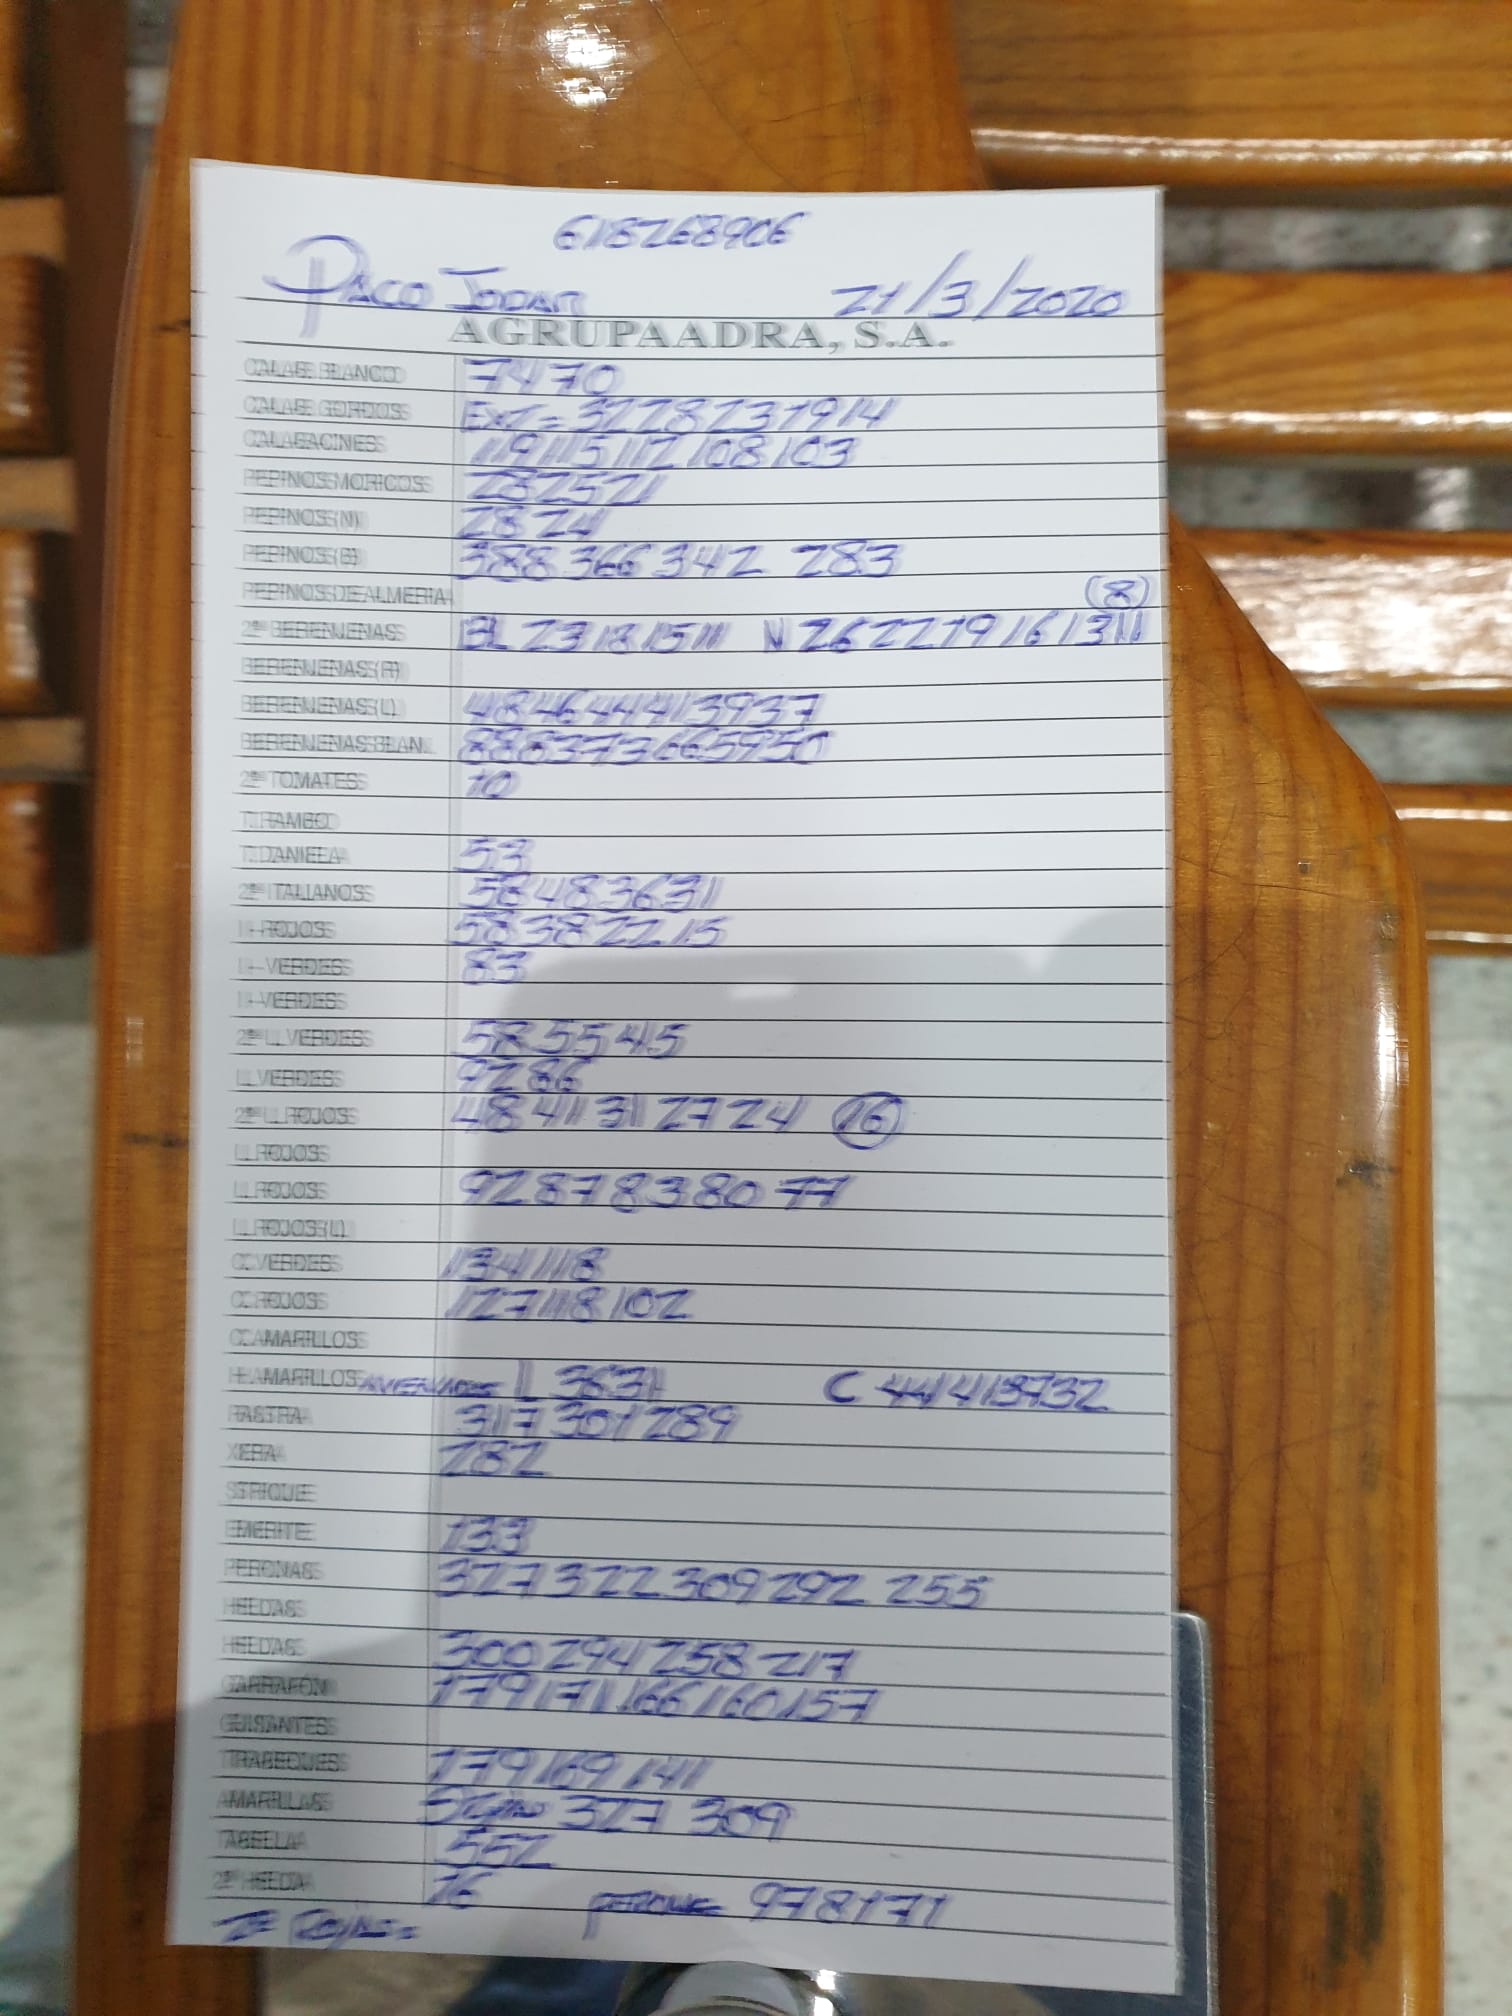 618268906
PACO JODAR 21/3/2020
AGRUPAADRA, S.A.
CALAB. BLANCO 7470
CALAB. GORDOS EXT = 3228231914
CALABACINES 119115112108103
PEPINOS MORICOS 282521
PEPINOS (N) 2824
PEPINOS (B) 388 366 342 283
PEPINOS DE ALMERIA (8)
2ª BERENJENAS BL 23181511 N 262219161311
BERENJENAS (R)
BERENJENAS (L) 484644413937
BERENJENAS BLAN. 888373665950
2ª TOMATES 10
T. RAMBO
T. DANIELA 53
2ª ITALIANOS 58483631
I - ROJOS 58382215
I - VERDES 83
I - VERDES
2ª LL VERDES 585545
LL VERDES 9286
2ª LL ROJOS 4841312724 (16)
LL ROJOS
LL ROJOS 9287838077
LL ROJOS (L)
C. VERDES 134118
C. ROJOS 127118102
C. AMARILLOS
H. AMARILLOS L 3631 C 4441413732
RASTRA 317301289
XERA 282
STRIQUE
EMERITE 133
PERONAS 327322309292 255
HELDAS
HELDAS 300294258217
GARRAFON 179171166160157
GUISANTES
TIRABEQUES 179169141
AMARILLAS 327 309
TABELLA 552
2ª HELDA 16 978171
2ª ROJAS =